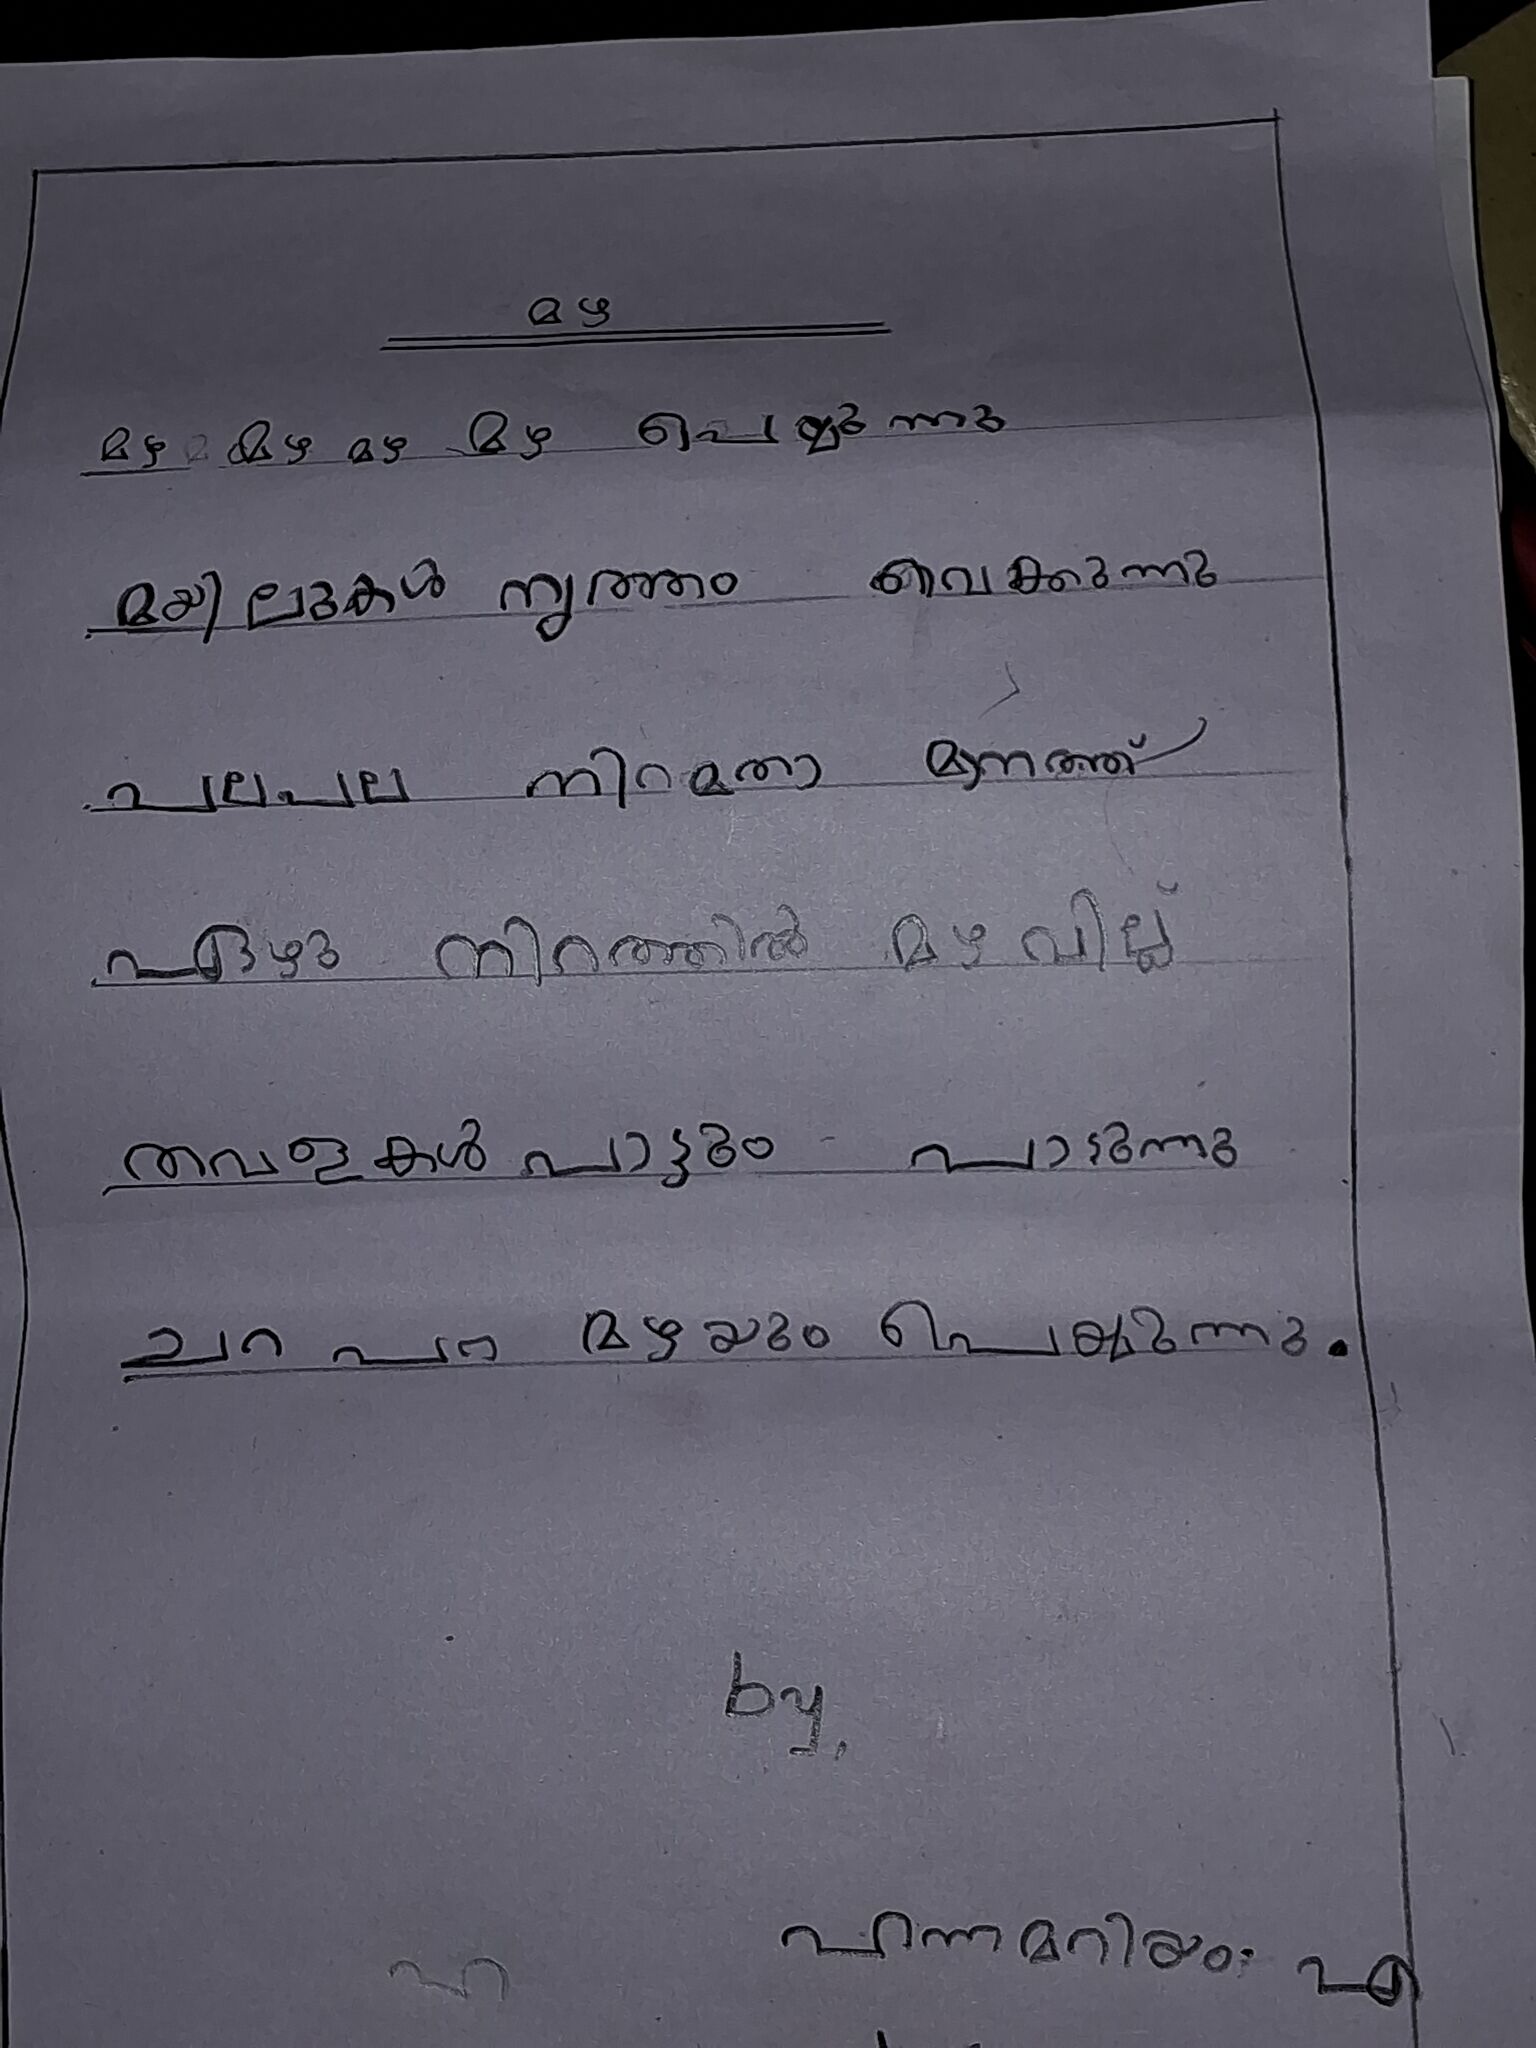 മഴ
മഴ മഴ മഴ മഴ പെയ്യുന്നു
മയിലുകൾ നൃത്തം വെക്കുന്നു
പലപല നിറമതാ മാനത്ത്
ഏഴു നിറത്തിൽ മഴവില്ല്
തവളകൾ പാട്ടും പാടുന്നു
ചറ പറ മഴയും പെയ്യുന്നു.
by,
ഹന്ന മറിയം എ